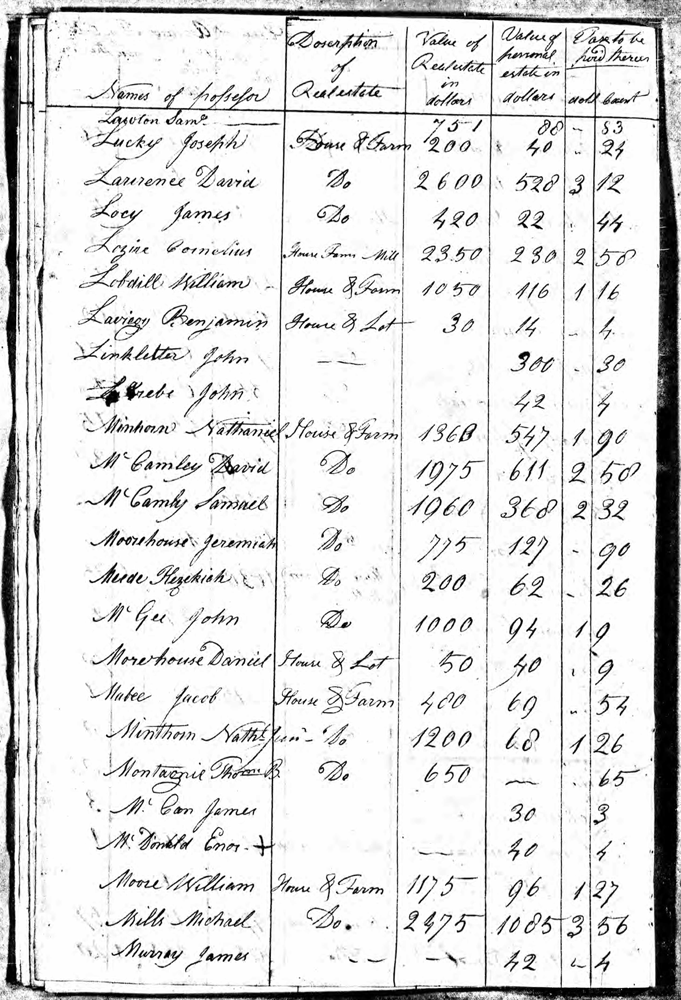 Names of possessor Description of Real estate Value of Real estate in dollars Value of personal estate in dollars Tax to be paid thereon doll Cent
Lawton Saml — 751 88 - 83
Lucky Joseph House & Farm 200 40 - 24
Lawrence David Do 2600 528 3 12
Locy James Do 420 22 . 44
Lozire Cornelius House Farm Mill 2350 230 2 58
Lobdill William House & Farm 1050 116 1 16
Benjamin House & Lot 30 14 - 4
Linkletter John — — 300 - 30
John 42 4
Minhorn Nathaniel House & Farm 1360 547 1 90
Mc Camley David Do 1975 611 2 58
Mc Camly Samuel Do 1960 368 2 32
Moorehouse Jeremiah Do 775 127 - 90
Meede Hezekiah Do 200 62 - 26
Mc Gee John Do 1000 94 1 9
Morehouse Daniel House & Lot 50 40 . 9
Mabee Jacob House & Farm 480 69 - 54
Minthorn Nathl Junr - Do 1200 68 1 26
Montagnie Thom B. Do 650 — . 65
Mc Can James 30 3
Mc Donald Enos + — 40 4
Moore William House & Farm 1175 96 1 27
Mills Michael Do. 2475 1085 3 56
Murray James - - - 42 - 4